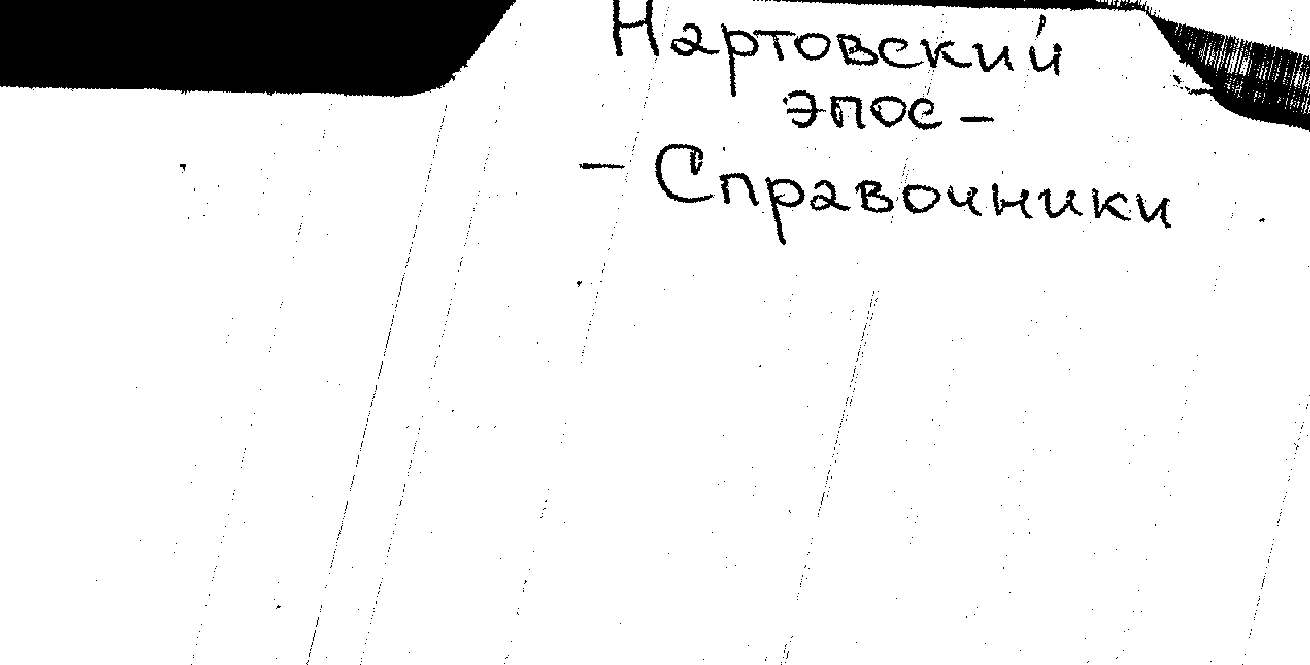 Нартовский
эпос -
- Справочники